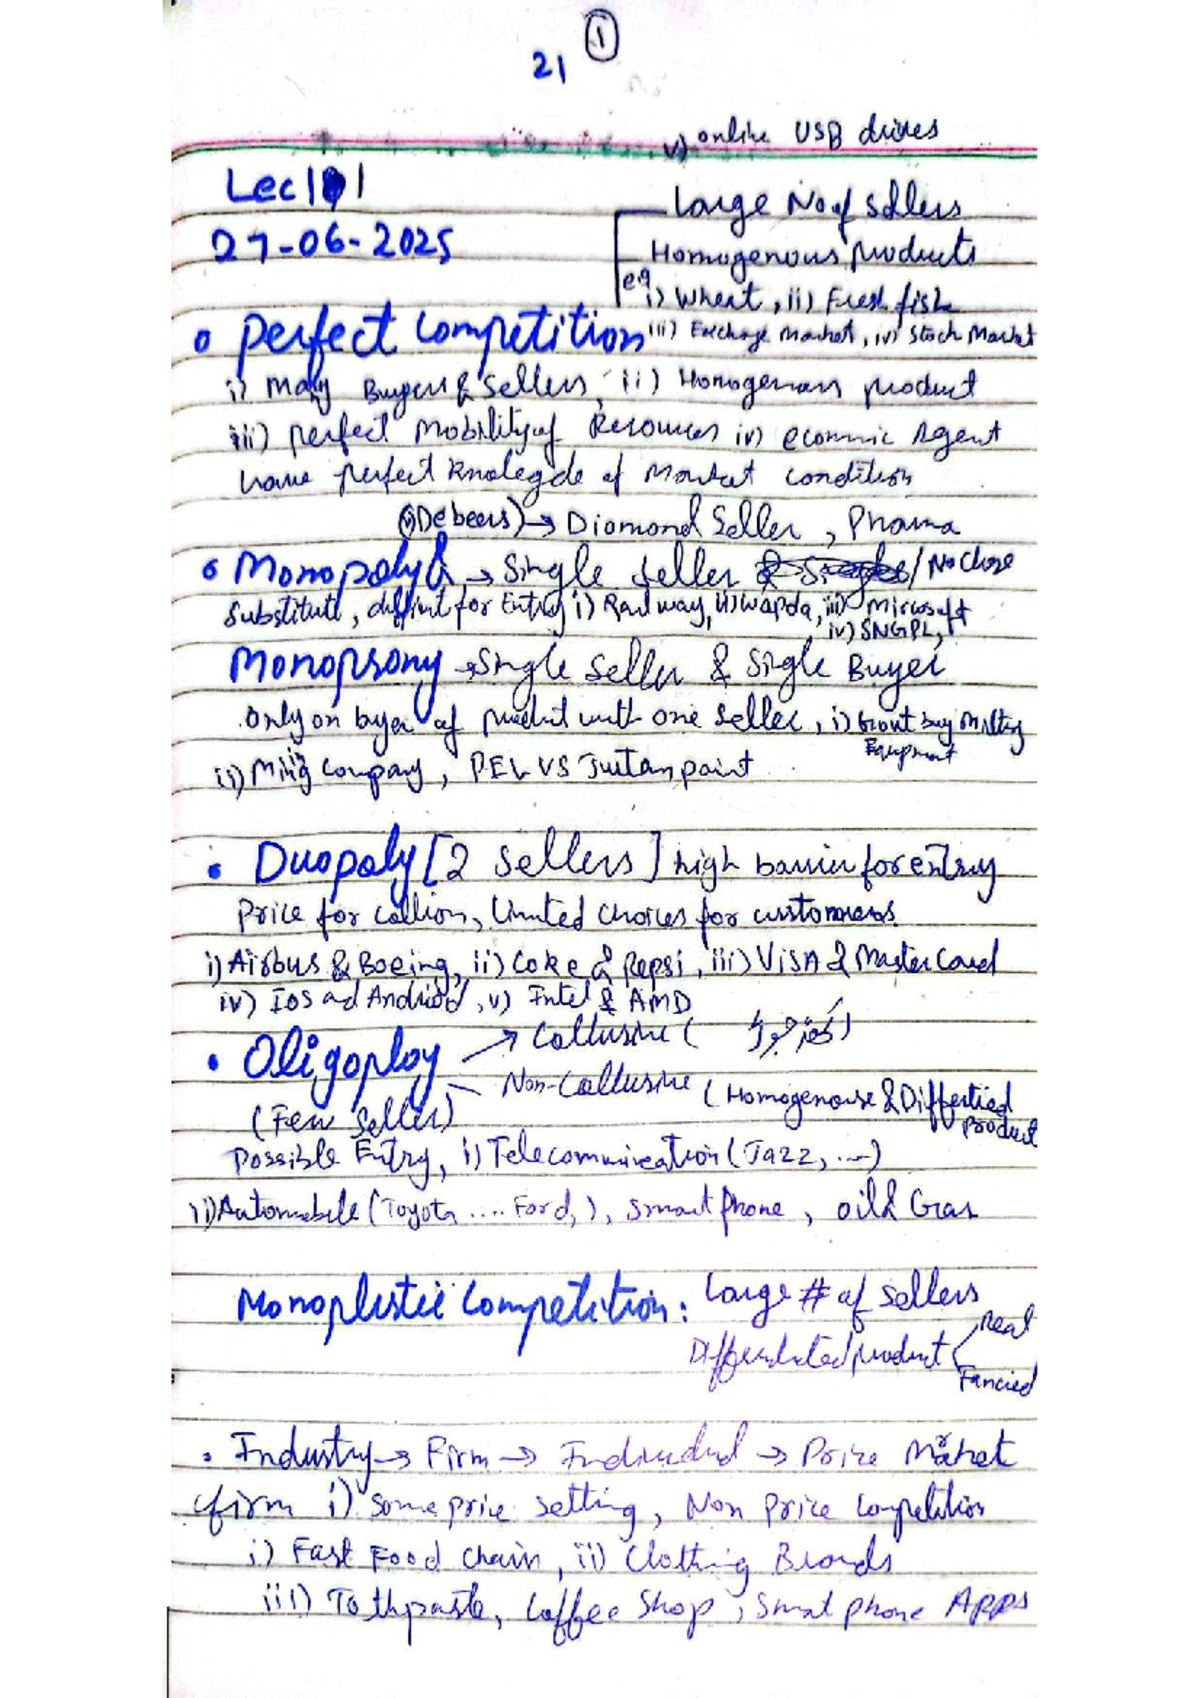 1
21
v) online USB drives
Lec 1
27-06-2025
Large No of sellers
Homogenous products
eg i) Wheat, ii) Fresh fish
• Perfect Competition iii) Exchage Market, iv) Stock Market
i) Many Buyers & Sellers, ii) Homogenous product
iii) perfect Mobility of Resources iv) economic Agent
have perfect Knolegde of Market condition
(Debeers) → Diomond Seller, Pharma
• Monopoly → Single Seller / No Close
Substitute, for Entry i) Railway, ii) Wapda, iii) Microsoft
iv) SNGPL,
Monopsony → Single Seller & Sigle Buyer
Only on byer of product with one seller, i) Govnt buy
Equpment
ii) Minig Company, PEL VS
• Duopoly [2 Sellers] high barrier for entry
Price for collion, Limited choices for customeres
i) Airbus & Boeing, ii) Coke & Pepsi, iii) VISA & MasterCard
iv) IOS ad Android, v) Intel & AMD
→ Collusive (
• Oligoploy
Non-Collusive (Homogenouse &
(Few Seller) product
Possible Entry, i) Telecommunication (Jazz, ...)
ii) Automobile (Toyota .... Ford,), Smart phone, oil & Gas
Monoplistic Competition: Large # of sellers
Real
product
Fancied
• Industry → Firm → Individual → Price Market
firm i) Some price setting, Non Price Competition
i) Fast Food Chain, ii) Clothing Brands
iii) Tothpaste, Coffee Shop, Smat phone Apps